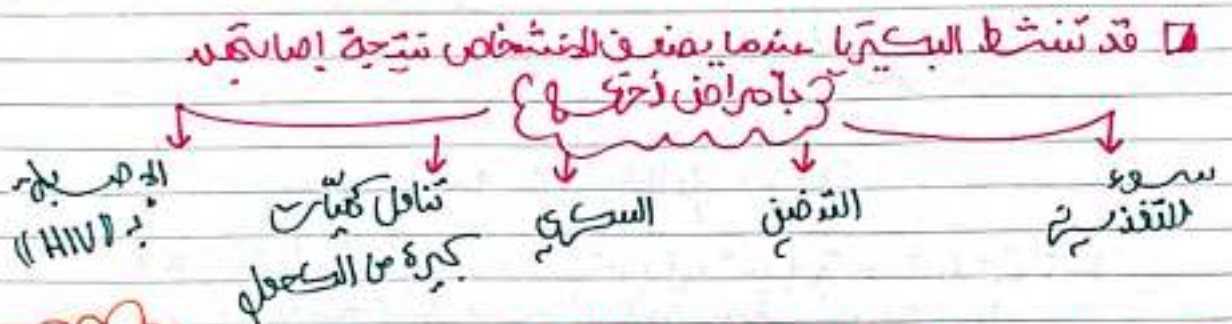 قد تنشط البكتريا عندما يضعف الأشخاص نتيجة إصابتهم
بأمراض أخرى
سوء
التغذية
التدخين
السكري
تناول كميات
كبيرة من الكحول
الإصابة
بـ "HIV"